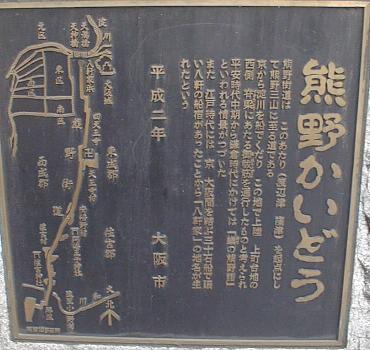 熊野かいどう
熊野街道は このあたり(渡辺津 窪津)を起点にし
て熊野三山に至る道である
京から淀川を船でくだり この地で上陸 上町台地の
西側 脊梁にあたる御祓筋を通行したものと考えられ
平安時代中期から鎌倉時代にかけては「蟻の熊野詣」
といわれる情景がつづいた
また 江戸時代には 京 大阪間を結ぶ三十石船で賑
い八軒の船宿があったことから「八軒家」の地名が生
れたという
平成二年 大阪市
淀川
天満橋
天神橋
八軒家
大阪城
北区
東区
西区
南区
四天王寺
熊野街道
天王寺村
東成郡
西成郡
住吉郡
住吉村
大和川
北